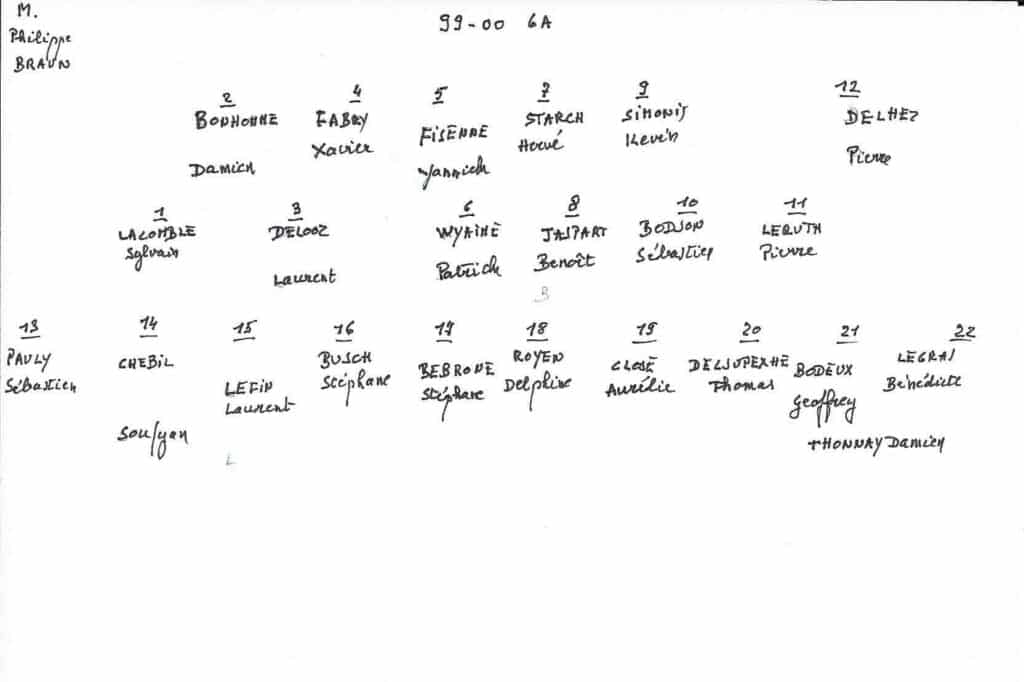 M.
Philippe
BRAUN
99-00 6A
2 4 5 7 9 12
BODHONNE FABRY FISENNE STARCH SIMONIS DELHEZ
Damien Xavier Yannick Hervé Kevin Pierre
1 3 6 8 10 11
LACOMBLE DELOOZ JASPART BODSON LERUTH
Sylvain Laurent Patrick Benoît Sébastien Pierre
B
13 14 15 16 17 18 19 20 21 22
PAULY CHEBIL LEFIN BUSCH BEBRONE ROYEN CLOSÉ BODEUX LEGRAS
Sébastien Soufyan Laurent Stéphane Stéphane Delphine Aurélie Thomas Geoffrey Bénédicte
L
THONNAY Damien